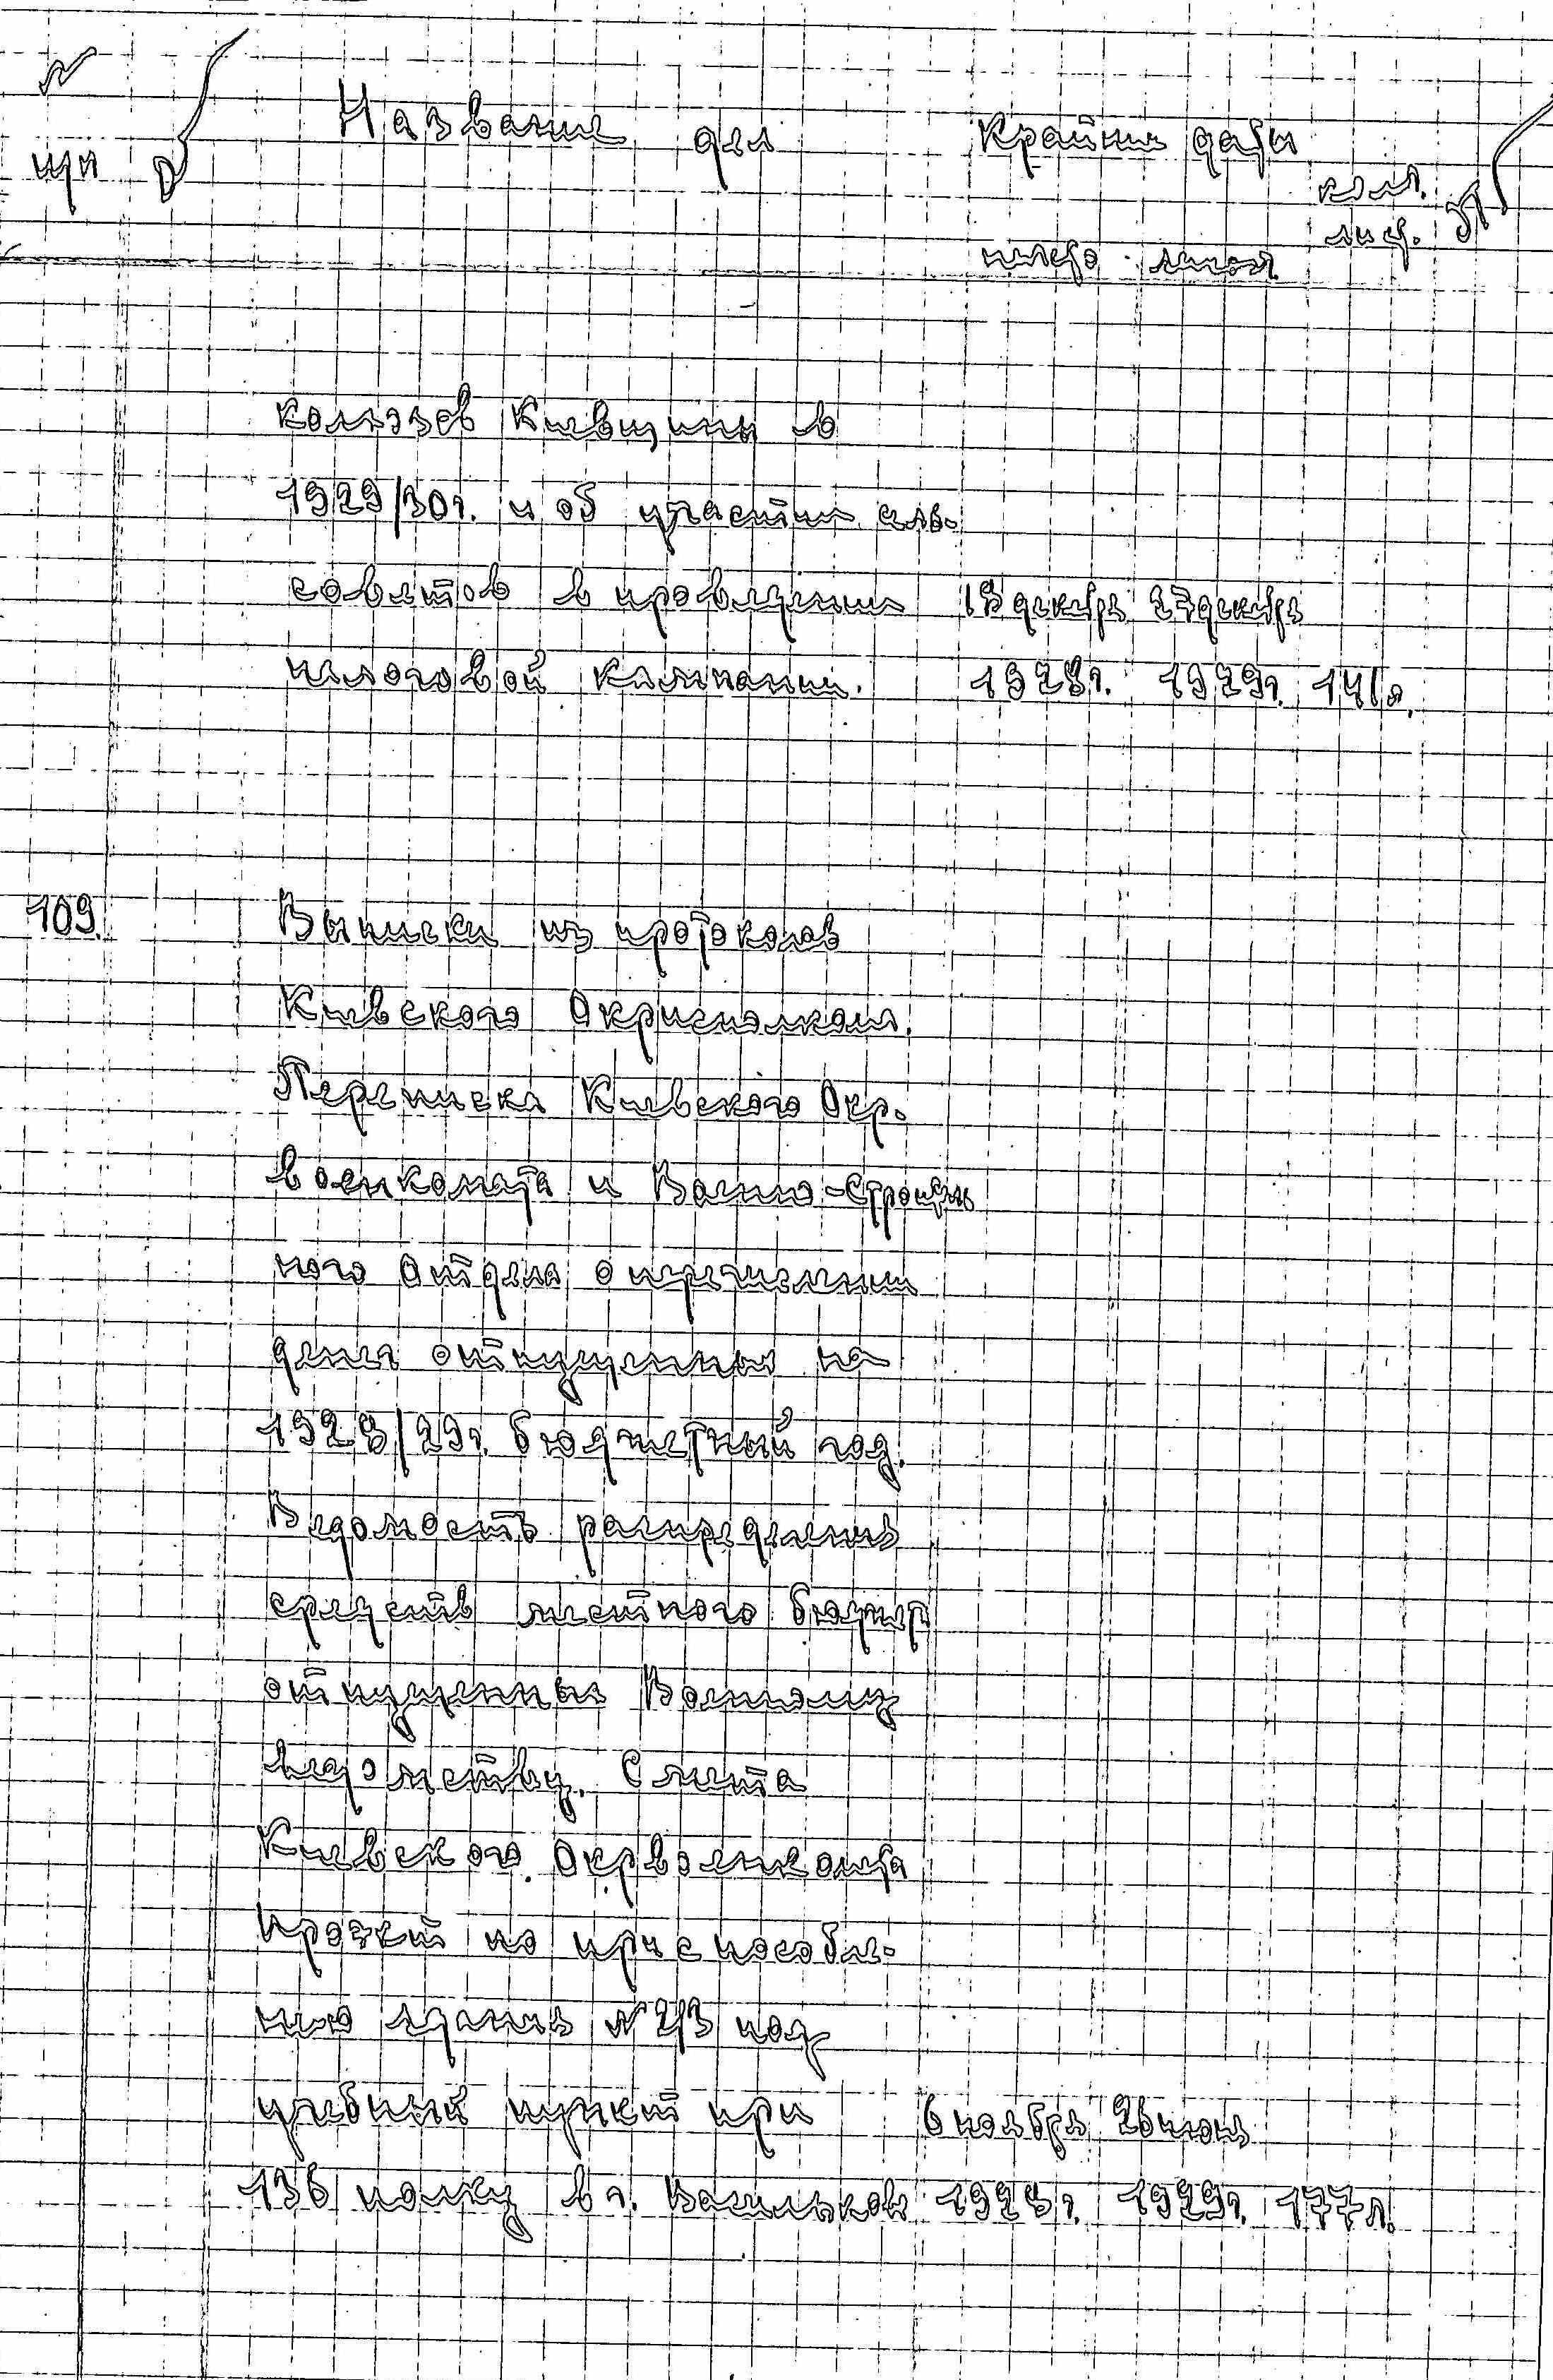 Название дел Крайние даты
кол.
лист.
колхозов Киевщины в
1929/30г. и об участии сель-
советов в проведении 18 декабрь 27 декабрь
налоговой кампании. 1928г. 1929г. 141л.
109. Выписки из протоколов
Киевского Окрисполкома.
Переписка Киевского Окр.
военкомата и Военно-Строитель
ного Отдела о перечислении
денег отпущенных на
1928/29г. бюджетный год.
Ведомость распределения
средств местного бюджета
отпущенных Военному
ведомству. Смета
Киевского Окрвоенкомата
проэкт по приспособле-
нию здания № 2/3 под
учебный пункт при 6 ноябрь 26 июнь
136 полку в г. Василькове 1928г. 1929г. 177л.